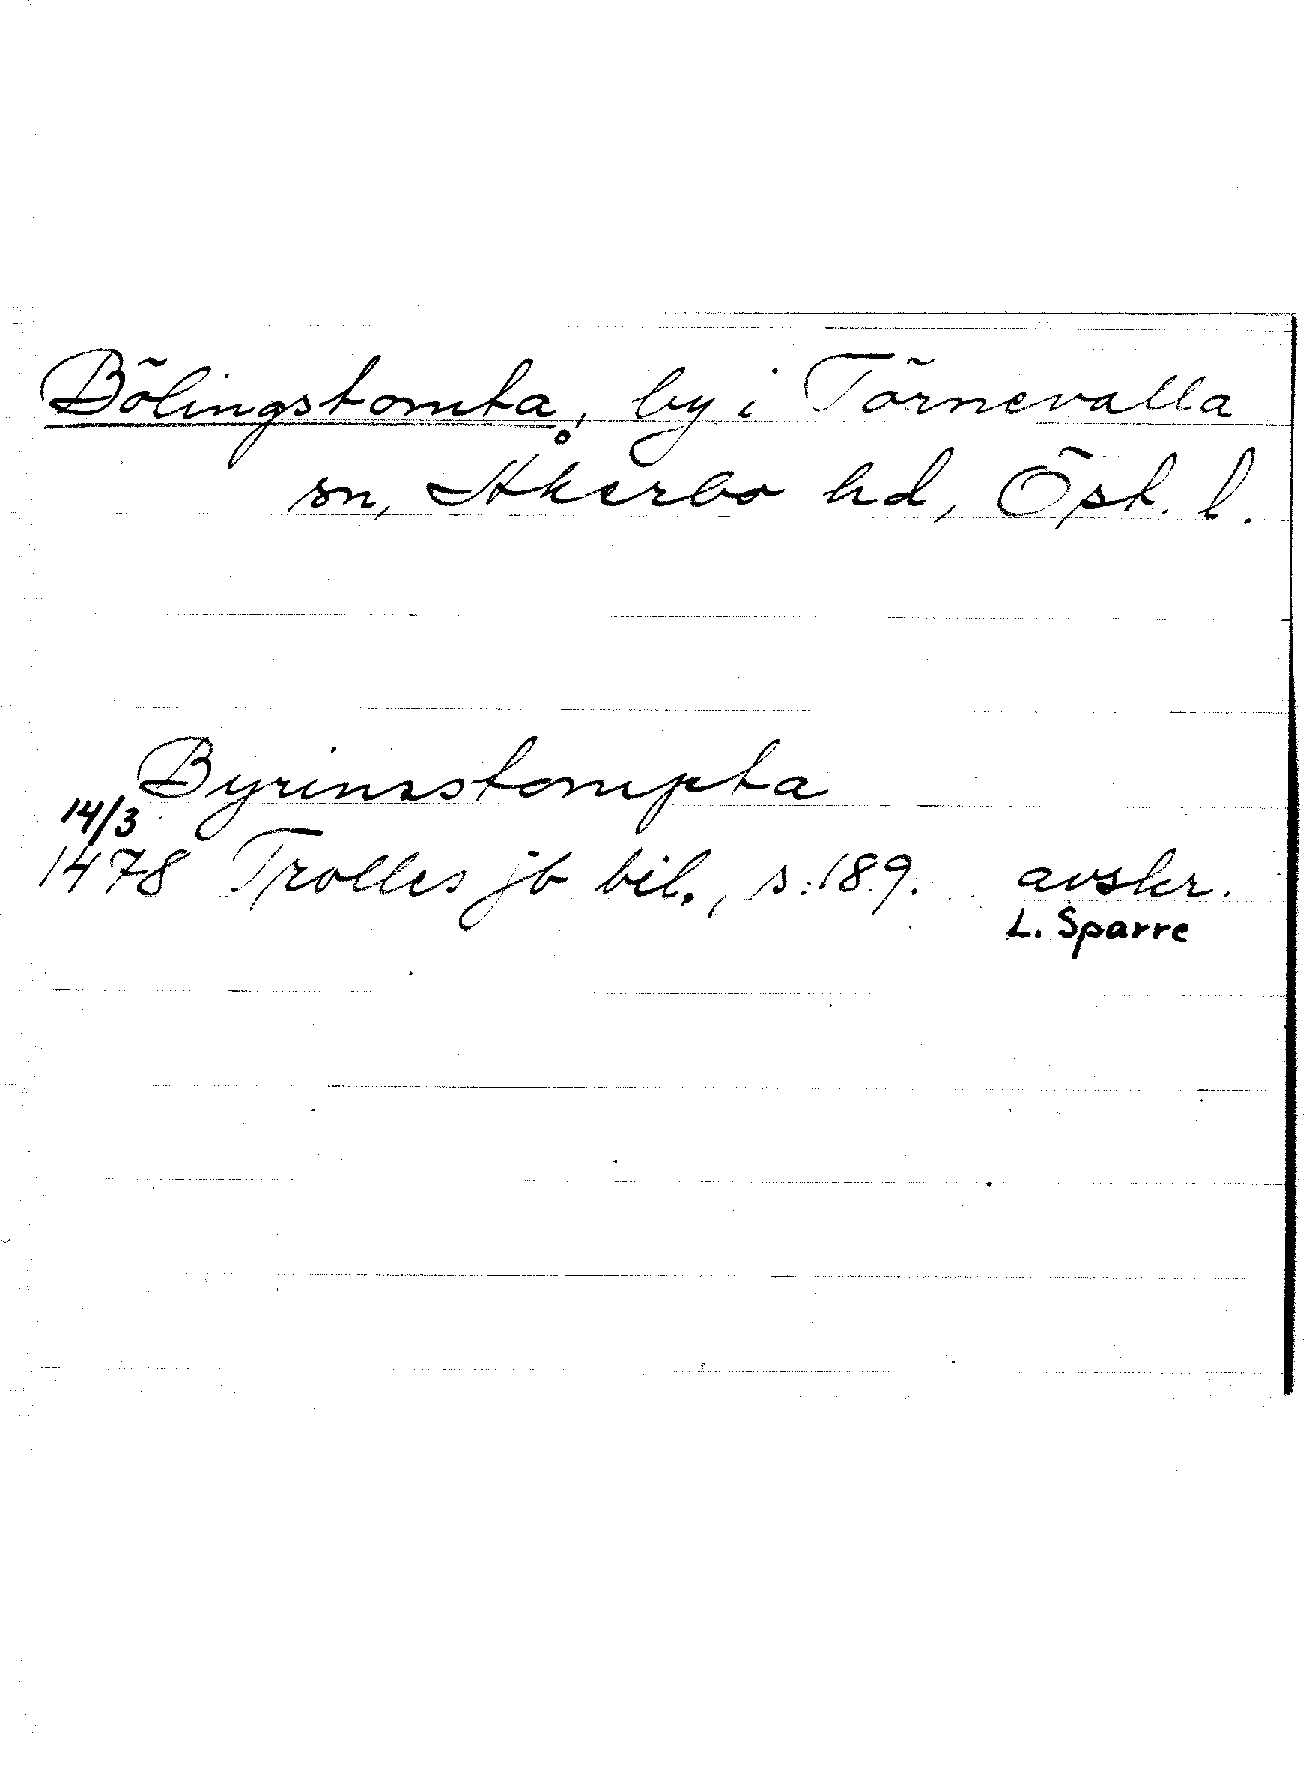 Bölingstomta, by i Törnevalla
sn, Åkerbo hd, Öst. l.
Byrinsstompta
14/3
1478 Trolles jb bil., s. 189. avskr.
L. Sparre